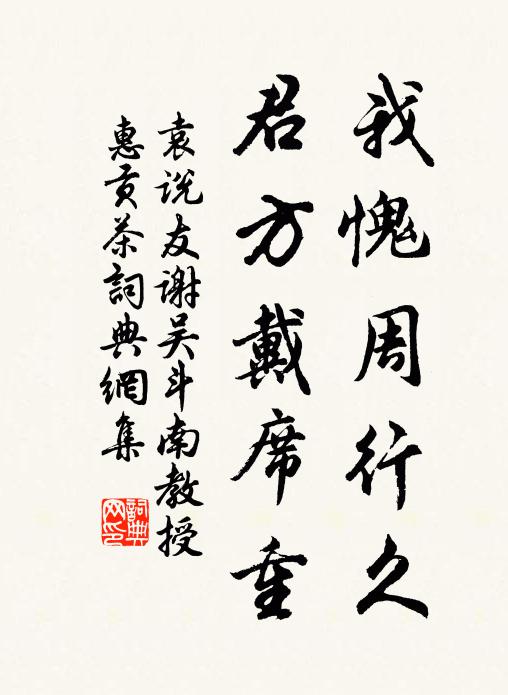 我愧周行久
君方戴席重
袁说友谢吴斗南教授
惠贡茶詞典網集
詞典
网印